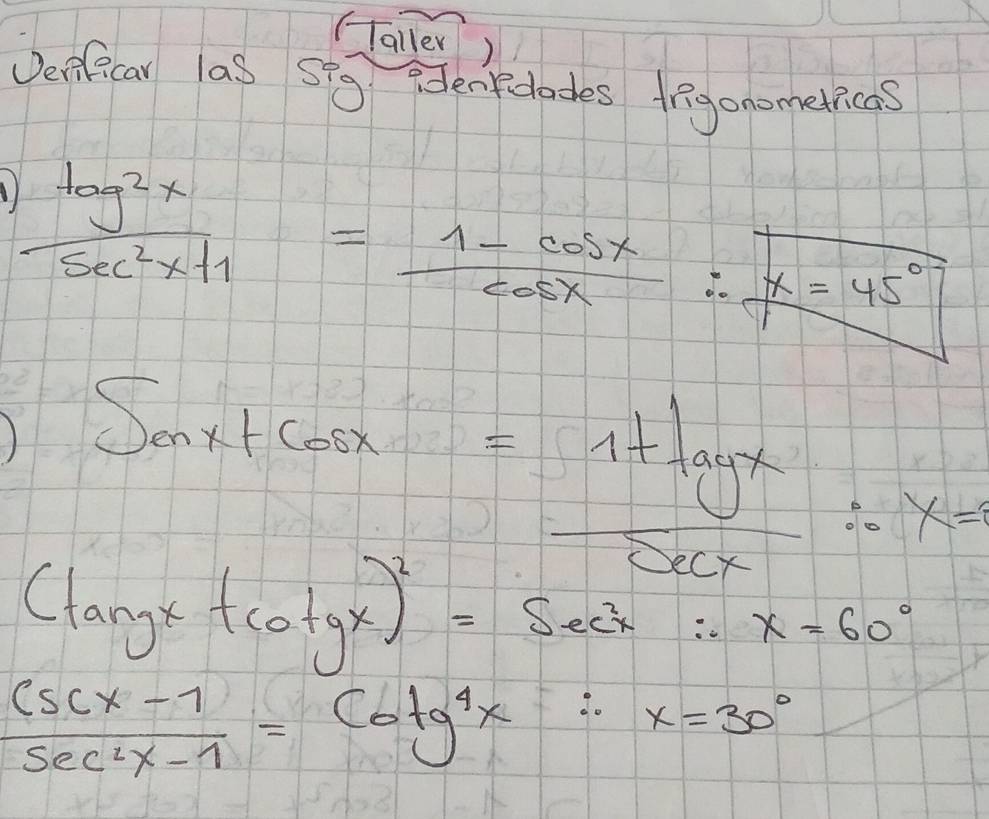 (Taller)
Verificar las sig. identidades trigonometricas
1) tag²x / sec²x+1 = 1 - cosx / cosx ∴ x = 45°
) Senx + Cosx = 1 + tagx / Secx ∴ X =
(tangx + cotgx)² = Sec²x ∴ x = 60°
cscx - 1 / sec²x - 1 = Cotg⁴x ∴ x = 30°